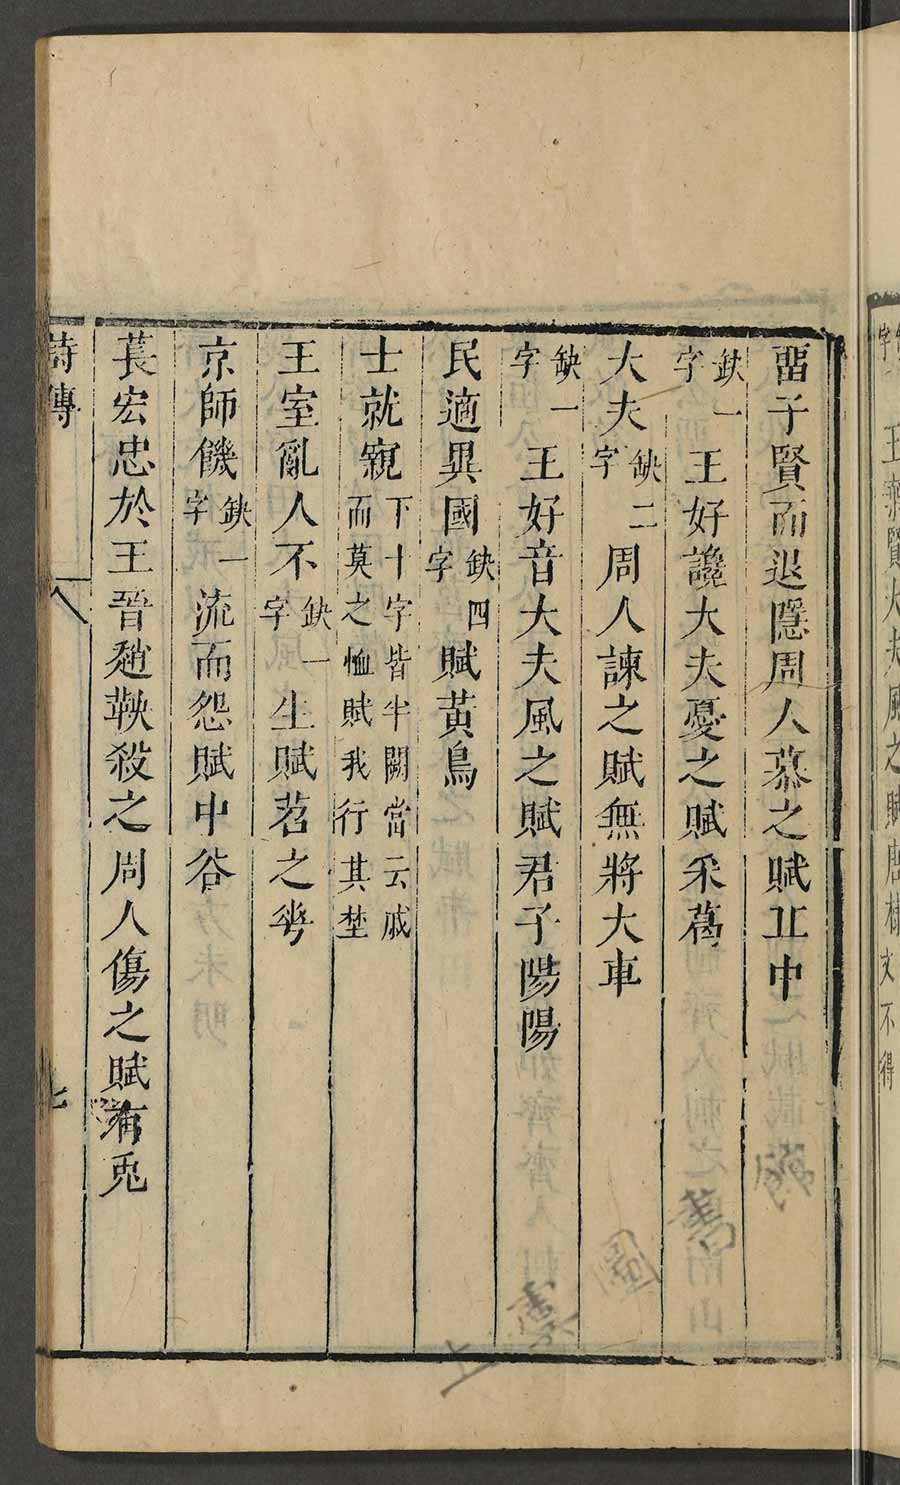 畱子賢而退隱周人慕之賦丘中
缺一字王好讒大夫憂之賦采葛
大夫缺二字周人諫之賦無將大車
缺一字王好音大夫風之賦君子陽陽
民適異國缺四字賦黃鳥
士就窺下十字皆半闕當云戚而莫之恤賦我行其埜
王室亂人不缺一字生賦苕之華
京師饑缺一字流而怨賦中谷
萇宏忠於王晉趙鞅殺之周人傷之賦有兎
詩傳 八 七